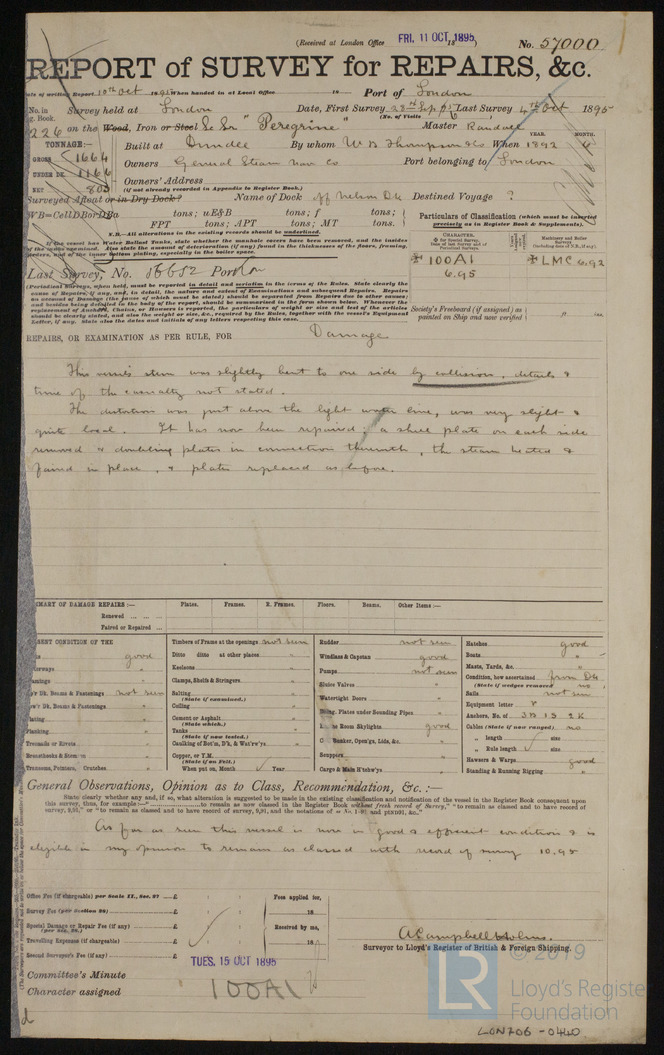 (Received at London Office FRI. 11 OCT. 1895 18 ) No. 57000
REPORT of SURVEY for REPAIRS, &c.
of writing Report 10th Oct 1895 When handed in at Local Office 18 Port of London
No. in Survey held at London Date, First Survey 28th Sep 95 Last Survey 4th Oct 1895
g. Book. (No. of Visits 6 )
226 on the Wood, Iron or Steel Sc Sr "Peregrine" Master Randall
TONNAGE:— YEAR. MONTH.
GROSS 1664 Built at Dundee By whom W B Thompson & Co When 1892 6
UNDER DK. 1166 Owners General Steam Nav Co Port belonging to London
NET 803 Owners' Address
(if not already recorded in Appendix to Register Book.)
Surveyed Afloat or in Dry Dock? Name of Dock off Nelson Dk Destined Voyage ?
WB=CellDBorDBa tons; uE&B tons; f tons;
FPT tons; APT tons; MT tons.
N.B.—All alterations in the existing records should be underlined.
Particulars of Classification (which must be inserted
precisely as in Register Book & Supplements).
If the vessel has Water Ballast Tanks, state whether the manhole covers have been removed, and the insides
CHARACTER. Machinery and Boiler Surveys
100A1 LMC 6.92
6.95
Last Survey, No. 56652 Port Lon
(Periodical Surveys, when held, must be reported in detail and seriatim in the terms of the Rules. State clearly the
cause of Repairs, if any, and, in detail, the nature and extent of Examinations and subsequent Repairs. Repairs
on account of Damage (the cause of which must be stated) should be separated from Repairs due to other causes;
and besides being detailed in the body of the report, should be summarised in the form shown below. Whenever the
replacement of Anchors, Chains, or Hawsers is reported, the particulars of weight or size and test of the articles
should be clearly stated, and also the weight or size, &c., required by the Rules, together with the vessel's Equipment
Letter, if any. State also the dates and initials of any letters respecting this case.
Society's Freeboard (if assigned) as
painted on Ship and now verified
REPAIRS, OR EXAMINATION AS PER RULE, FOR Damage
This vessel's stem was slightly bent to one side by collision, details &
time of the casualty not stated.
The distortion was just above the light water line, was very slight &
quite local. It has now been repaired, a shell plate on each side
removed & doubling plates in connection therewith, the steam heated &
faired in place, & plates replaced as before.
SUMMARY OF DAMAGE REPAIRS:— Plates. Frames. R. Frames. Floors. Beams. Other Items:—
Renewed
Paired or Repaired
PRESENT CONDITION OF THE
good
Dk, Beams & Fastenings not seen
Dk, Beams & Fastenings "
Plating "
Planking "
Treenails or Rivets "
Breasthooks & Stemson "
Transoms, Pointers, Crutches "
Timbers of Frame at the openings not seen
Ditto ditto at other places "
Keelsons "
Clamps, Shelfs & Stringers "
Salting
(State if examined.)
Ceiling "
Cement or Asphalt "
(State which.)
Tanks "
(State if now tested.)
Caulking of Bot'm, D'k, & Wat'rw'ys "
Copper, or Y.M.
(State if on Felt.)
When put on, Month Year
Rudder not seen
Windlass & Capstan good
Pumps not seen
Sluice Valves "
Watertight Doors "
Plates under Sounding Pipes "
Engine Room Skylights good
Bunker, Open'gs, Lids, &c. "
Scuppers "
Cargo & Main H'tchw'ys "
Hatches good
Boats "
Masts, Yards, &c. "
Condition, how ascertained from Dk
(State if wedges removed no )
Sails not seen
Equipment letter
Anchors, No. of 3B 1S 2K
Cables (State if now ranged) no
" length size
" Rule length size
Hawsers & Warps good
Standing & Running Rigging "
General Observations, Opinion as to Class, Recommendation, &c. :—
State clearly whether any, and if so, what alteration is suggested to be made in the existing classification and notification of the vessel in the Register Book consequent upon
this survey, thus, for example :—" to remain as now classed in the Register Book without fresh record of Survey," "to remain as classed and to have record of
As far as seen this vessel is now in good & efficient condition & is
eligible in my opinion to remain as classed with record of survey 10.95
Office Fee (if chargeable) per Scale II., Sec. 27 £
Survey Fee (per Section 28) £
Special Damage or Repair Fee (if any) £
(per Sec. 28.)
Travelling Expenses (if chargeable) £
Second Surveyor's Fee (if any) £
Fees applied for,
18
Received by me,
18
A Campbell Holms.
Surveyor to Lloyd's Register of British & Foreign Shipping.
TUES. 15 OCT 1895
Committee's Minute
Character assigned 100A1
© 2019
LR
Lloyd's Register
Foundation
LON706-0440